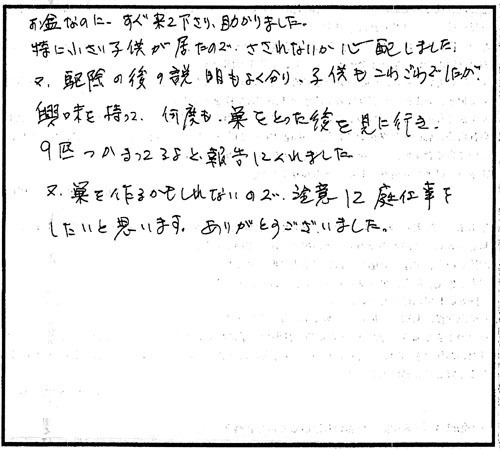 お盆なのに、すぐ来て下さり、助かりました。
特に小さい子供が居たので、さされないか心配しました。
又、駆除の後の説明もよく分り、子供もこわごわでしたが、
興味を持って、何度も、巣をとった後を見に行き、
9匹つかまってるよと報告にくれました
又、巣を作るかもしれないので、注意して庭仕事を
したいと思います。ありがとうございました。